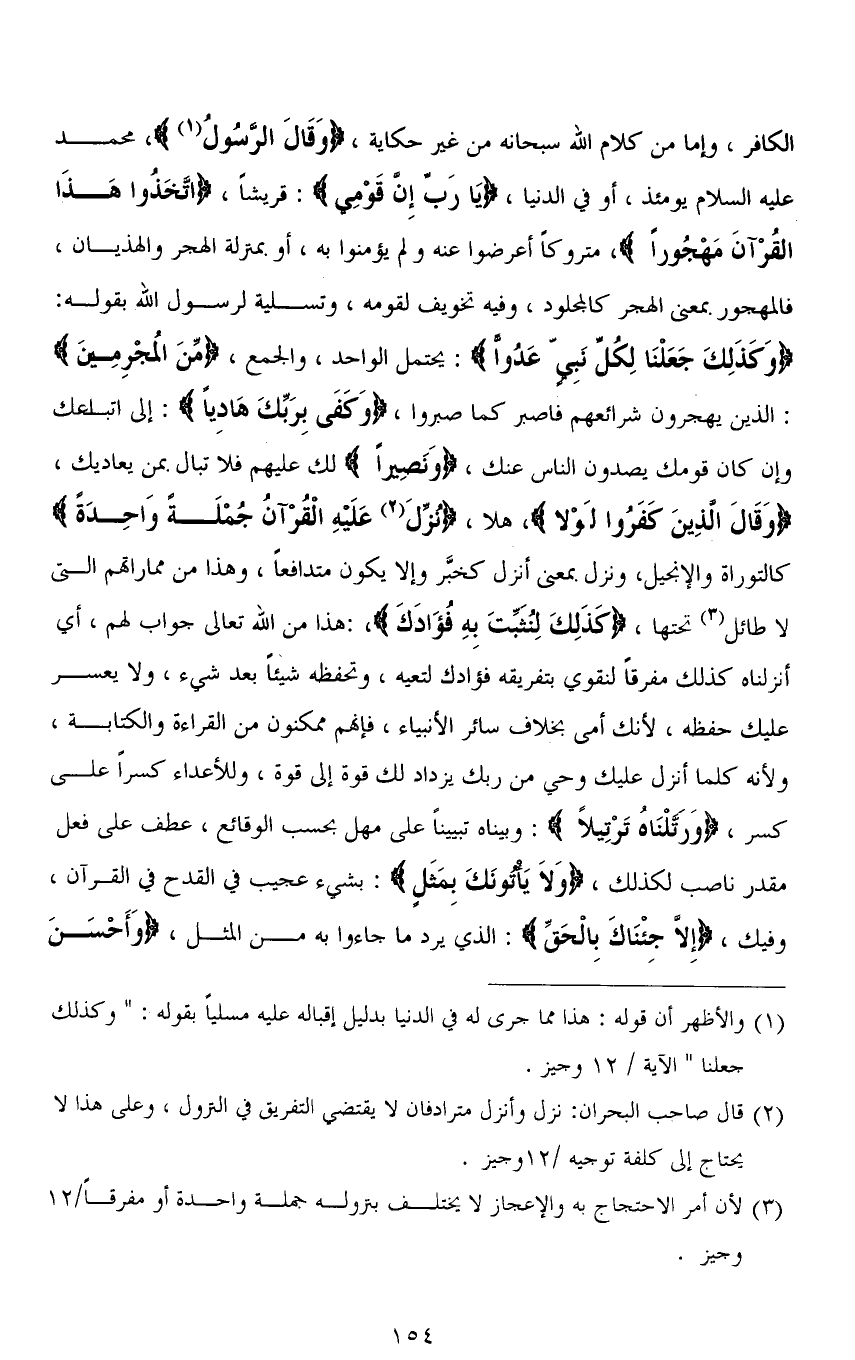 الكافر ، وإما من كلام الله سبحانه من غير حكاية ، ﴿وَقَالَ الرَّسُولُ(١) ﴾، محمد
عليه السلام يومئذ ، أو في الدنيا ، ﴿يَا رَبِّ إِنَّ قَوْمِي ﴾ : قريشاً ، ﴿اتَّخَذُوا هَذَا
الْقُرْآنَ مَهْجُوراً ﴾، متروكاً أعرضوا عنه و لم يؤمنوا به ، أو بمنزلة الهجر والهذيان ،
فالمهجور بمعنى الهجر كالمجلود ، وفيه تخويف لقومه ، وتسلية لرسول الله بقوله:
﴿وَكَذَلِكَ جَعَلْنَا لِكُلِّ نَبِيٍّ عَدُواًّ ﴾ : يحتمل الواحد ، والجمع ، ﴿مِّنَ الْمُجْرِمِينَ ﴾
: الذين يهجرون شرائعهم فاصبر كما صبروا ، ﴿وَكَفَى بِرَبِّكَ هَادِياً ﴾ : إلى اتبلعك
وإن كان قومك يصدون الناس عنك ، ﴿وَنَصِيراً ﴾ لك عليهم فلا تبال بمن يعاديك ،
﴿وَقَالَ الَّذِينَ كَفَرُوا لَوْلا ﴾، هلا ، ﴿نُزِّلَ(٢) عَلَيْهِ الْقُرْآنُ جُمْلَةً وَاحِدَةً ﴾
كالتوراة والإنجيل، ونزل بمعنى أنزل كخبَّر وإلا يكون متدافعاً ، وهذا من مماراتهم التى
لا طائل(٣) تحتها ، ﴿كَذَلِكَ لِنُثَبِّتَ بِهِ فُؤَادَكَ ﴾، :هذا من الله تعالى جواب لهم ، أي
أنزلناه كذلك مفرقاً لنقوي بتفريقه فؤادك لتعيه ، وتحفظه شيئاً بعد شيء ، ولا يعسر
عليك حفظه ، لأنك أمى بخلاف سائر الأنبياء ، فإنهم ممكنون من القراءة والكتابة ،
ولأنه كلما أنزل عليك وحي من ربك يزداد لك قوة إلى قوة ، وللأعداء كسراً على
كسر ، ﴿وَرَتَّلْنَاهُ تَرْتِيلاً ﴾ : وبيناه تبييناً على مهل بحسب الوقائع ، عطف على فعل
مقدر ناصب لكذلك ، ﴿وَلاَ يَأْتُونَكَ بِمَثَلٍ ﴾ : بشيء عجيب في القدح في القرآن ،
وفيك ، ﴿إِلاَّ جِئْنَاكَ بِالْحَقِّ ﴾ : الذي يرد ما جاءوا به من المثل ، ﴿وَأَحْسَنَ
(١) والأظهر أن قوله : هذا مما جرى له في الدنيا بدليل إقباله عليه مسلياً بقوله : " وكذلك
جعلنا " الآية / ١٢ وجيز .
(٢) قال صاحب البحران: نزل وأنزل مترادفان لا يقتضي التفريق في النزول ، وعلى هذا لا
يحتاج إلى كلفة توجيه /١٢وجيز .
(٣) لأن أمر الاحتجاج به والإعجاز لا يختلف بنزوله جملة واحدة أو مفرقاً/١٢
وجيز .
١٥٤